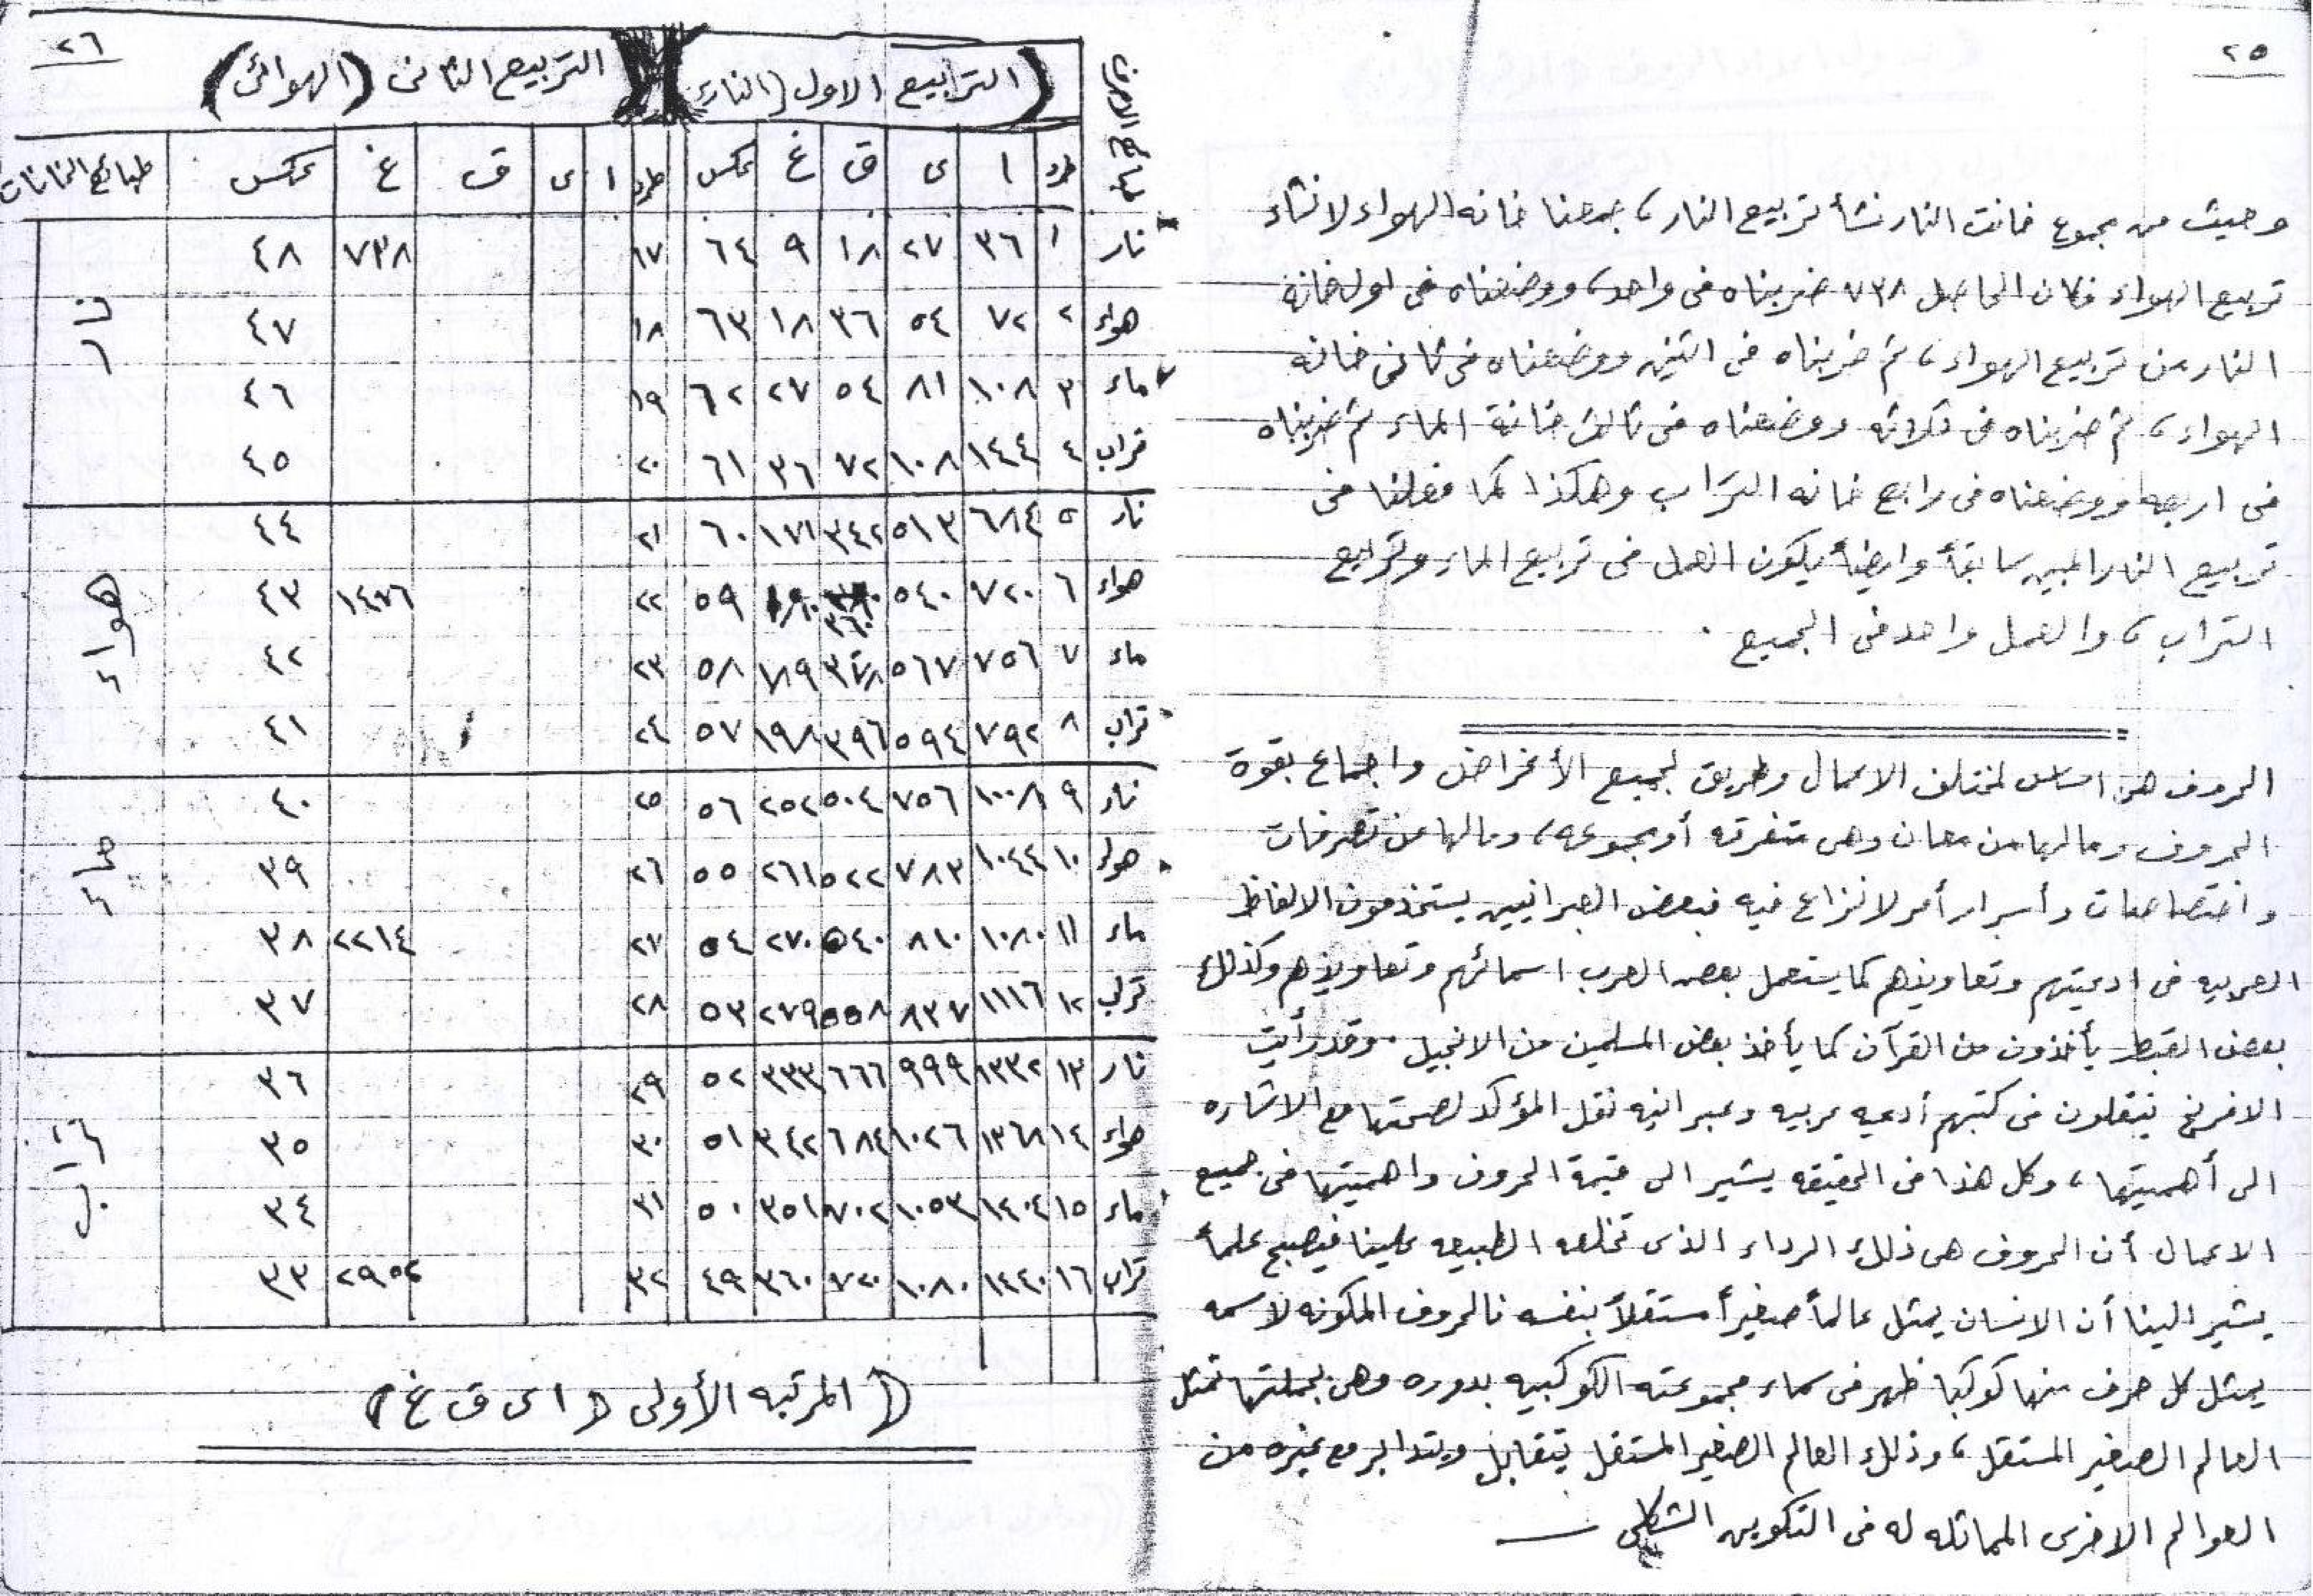 ٢٥
وحيث من مجموع خانات النار نشأ تربيع النار، جمعنا خانه الهواء لانشاء
تربيع الهواء فكان الحاصل ٧٣٨ ضربناه فى واحد، ووضعناه فى اول خانة
النار من تربيع الهواء، ثم ضربناه فى اثنين ووضعناه فى ثانى خانه
الهواء، ثم ضربناه فى ثلاثه ووضعناه فى ثالث خانة الماء ثم ضربناه
فى اربعه ووضعناه فى رابع خانه التراب وهكذا كما فعلنا فى
تربيع النار المبين سابقاً وايضاً يكون العمل فى تربيع الماء وتربيع
التراب، والعمل واحد فى الجميع .
الحروف هى اساس لمختلف الاعمال وطريق لجميع الأغراض واجماع بقوة
الحروف ومالها من معان وهى متفرقه أو مجموعه، ومالها من تصرفات
واختصاصات وأسرار أمر لا نزاع فيه فبعض العبرانيين يستخدمون الالفاظ
العربيه فى ادعيتهم وتعاويذهم كما يستعمل بعض العرب اسمائهم وتعاويذهم وكذلك
بعض القبط يأخذون من القرآن كما يأخذ بعض المسلمين من الانجيل . وقد رأيت
الافرنج ينقلون فى كتبهم أدعيه عربيه وعبرانيه نقل المؤكد لصحتها مع الاشاره
الى أهميتها، وكل هذا فى الحقيقه يشير الى قيمة الحروف واهميتها فى جميع
الاعمال أن الحروف هى ذلك الرداء الذى تخلعه الطبيعه علينا فيصبح علماً
يشير الينا أن الانسان يمثل عالماً صغيراً مستقلاً بنفسه فالحروف المكونه لاسمه
يمثل كل حرف منها كوكبا ظهر فى سماء مجموعته الكوكبيه بدوره وهى بجملتها تمثل
العالم الصغير المستقل، وذلك العالم الصغير المستقل يتقابل ويتدابر مع غيره من
العوالم الاخرى المماثله له فى التكوين الشكلى
٢٦
(التربيع الاول (النارى) التربيع الثانى (الهوائى)
طرد ا ى ق غ عكس طرد ا ى ق غ عكس طبائع الخانات
نار ١ ٣٦ ٢٧ ١٨ ٩ ٦٤ ١٧ ٧٣٨ ٤٨ نار
هواء ٢ ٧٢ ٥٤ ٣٦ ١٨ ٦٣ ١٨ ٤٧
ماء ٣ ١٠٨ ٨١ ٥٤ ٢٧ ٦٢ ١٩ ٤٦
تراب ٤ ١٤٤ ١٠٨ ٧٢ ٣٦ ٦١ ٢٠ ٤٥
نار ٥ ٦٨٤ ٥١٣ ٣٤٢ ١٧١ ٦٠ ٢١ ٤٤ هواء
هواء ٦ ٧٢٠ ٥٤٠ ٣٦٠ ١٨٠ ٥٩ ٢٢ ١٤٧٦ ٤٣
ماء ٧ ٧٥٦ ٥٦٧ ٣٧٨ ١٨٩ ٥٨ ٢٣ ٤٢
تراب ٨ ٧٩٢ ٥٩٤ ٣٩٦ ١٩٨ ٥٧ ٢٤ ٤١
نار ٩ ١٠٠٨ ٧٥٦ ٥٠٤ ٢٥٢ ٥٦ ٢٥ ٤٠ ماء
هواء ١٠ ١٠٤٤ ٧٨٣ ٥٢٢ ٢٦١ ٥٥ ٢٦ ٣٩
ماء ١١ ١٠٨٠ ٨١٠ ٥٤٠ ٢٧٠ ٥٤ ٢٧ ٢٢١٤ ٣٨
تراب ١٢ ١١١٦ ٨٣٧ ٥٥٨ ٢٧٩ ٥٣ ٢٨ ٣٧
نار ١٣ ١٣٣٢ ٩٩٩ ٦٦٦ ٣٣٣ ٥٢ ٢٩ ٣٦ تراب
هواء ١٤ ١٣٦٨ ١٠٢٦ ٦٨٤ ٣٤٢ ٥١ ٣٠ ٣٥
ماء ١٥ ١٤٠٤ ١٠٥٣ ٧٠٢ ٣٥١ ٥٠ ٣١ ٣٤
تراب ١٦ ١٤٤٠ ١٠٨٠ ٧٢٠ ٣٦٠ ٤٩ ٣٢ ٢٩٥٢ ٣٣
(المرتبه الأولى (اى ق غ)